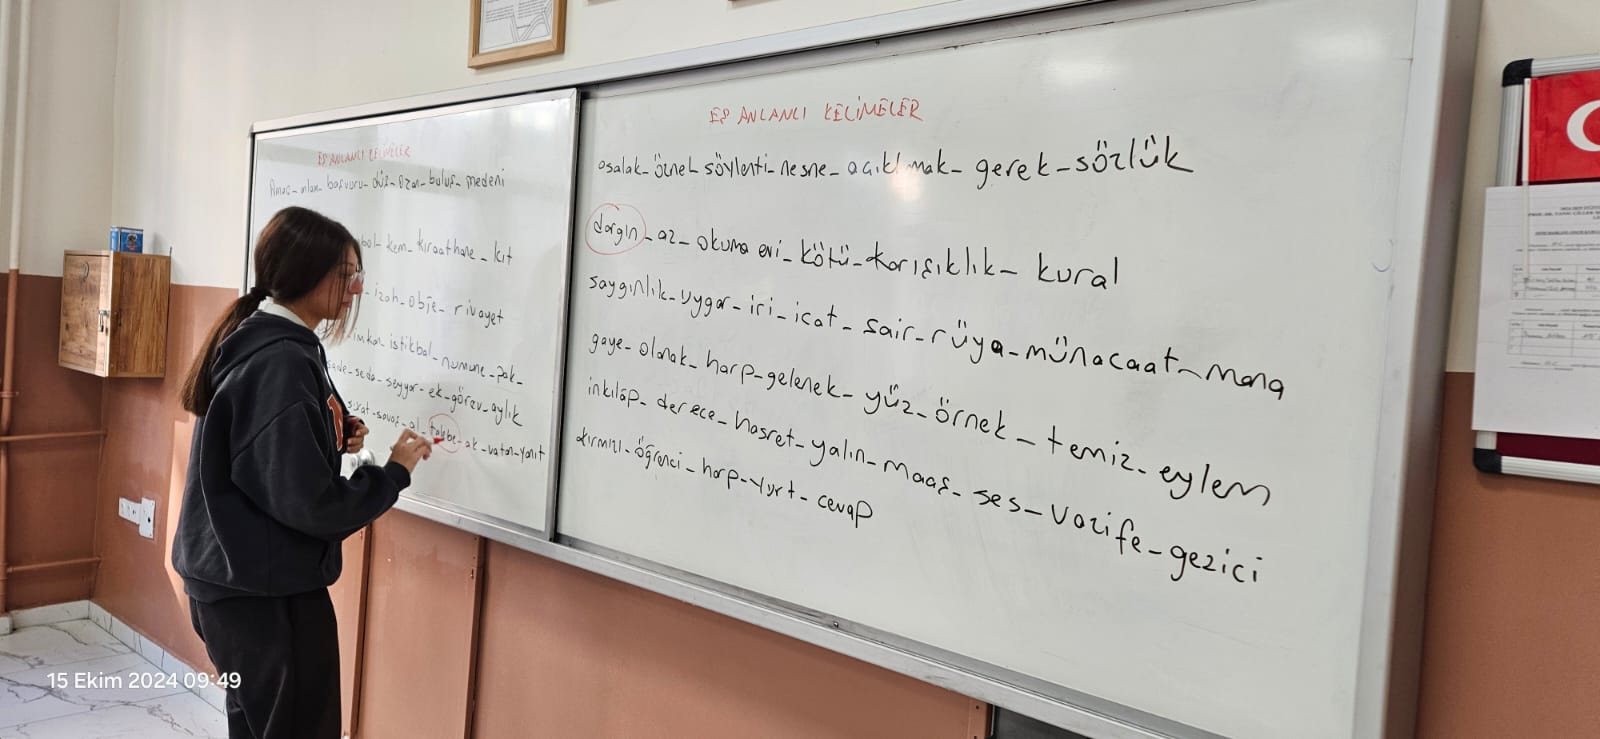 EŞ ANLAMLI KELİMELER
Amaç - anlam - başvuru - düş - ozan - buluş - medeni
kem - kıraathane - kıt
- izah - obje - rivayet
imkan - istikbal - numune - pak -
sade - seda - seyyar - ek - görev - aylık
surat - savaş - al - talebe - ak - vatan - yanıt
EŞ ANLAMLI KELİMELER
asalak - öznel - söylenti - nesne - açıklamak - gerek - sözlük
dargın - az - okuma evi - kötü - karışıklık - kural
saygınlık - uygar - iri - icat - şair - rüya - münacaat - mana
gaye - olanak - harp - gelenek - yüz - örnek - temiz - eylem
inkılap - derece - hasret - yalın - maaş - ses - vazife - gezici
kırmızı - öğrenci - harp - yurt - cevap
15 Ekim 2024 09:49